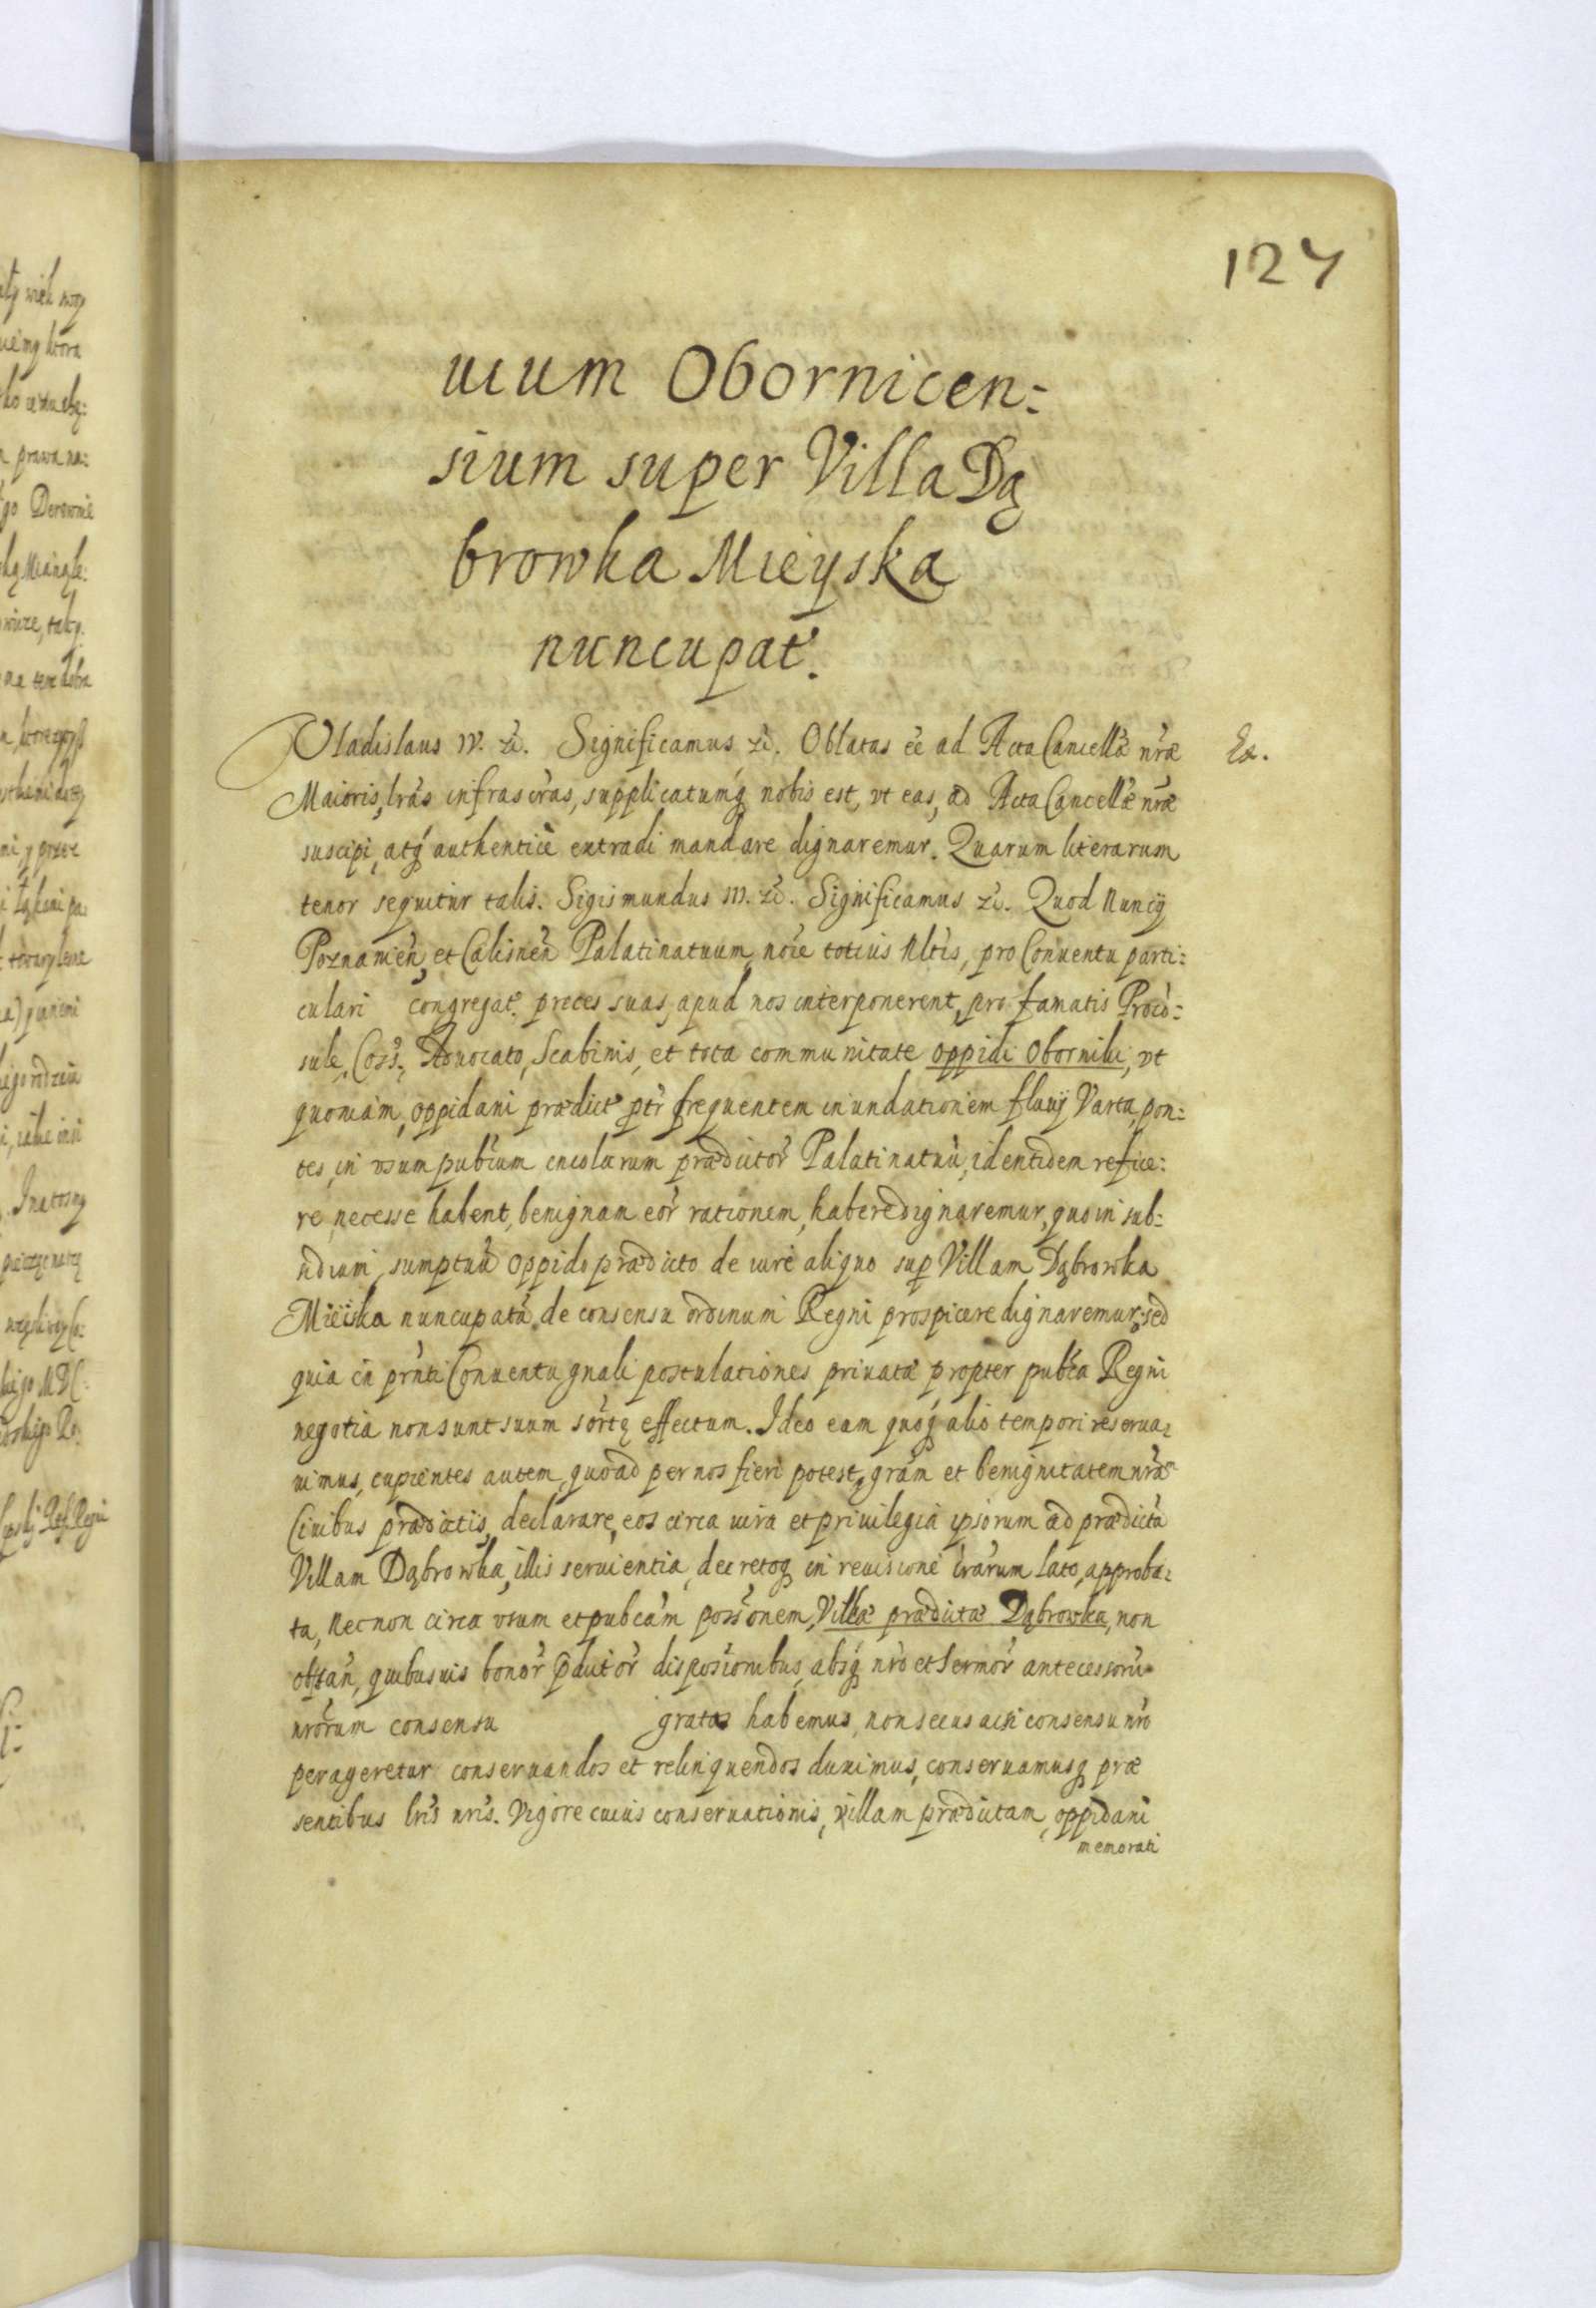 127
uium Obornicen:
sium super Villa Dą
browka Mieyska
nuncupat.
Vladislaus IV. &c. Significamus &c. Oblatas eẽ ad Acta Cancellæ nr̃æ
Ex.
Maioris, lr̃as infrascr̃as, supplicatumq́ nobis est, vt eas, ad Acta Cancellæ nr̃æ
suscipi, atq́ authenticè extradi mandare dignaremur. Quarum literarum
tenor sequitur talis. Sigismundus III. &c. Significamus &c. Quod Nuncij
Poznanień, et Calisneń Palatinatuum, noĩe totius Nltis, pro Conuentu parti:
culari congregat. preces suas, apud nos interponerent, pro famatis Procõ:
sule, Coss., Aduocato, Scabinis, et tota communitate oppidi Oborniki, vt
quoniam, oppidani prædict. ptr̃ frequentem inundationem fluuij Varta, pon:
tes, in vsum publ̃um incolarum prædictor̃ Palatinatuũ, identidem refice:
re necesse habent, benignam eor̃ rationem, habere dignaremur, quo in sub:
sidium sumptuũ oppido prædicto de iure aliquo sup Villam Dąbrowka
Mieiska nuncupatã de consensu ordinum Regni prospicere dignaremur, sed
quia in prñti Conuentu gnali postulationes priuatæ propter publ̃ca Regni
negotia non sunt suum sortę effectum. Ideo eam quoq́ alio tempori reserua:
uimus, cupientes autem, quoad per nos fieri potest, gr̃am et benignitatem nr̃am
Ciuibus prædictis, declarare, eos circa iura et priuilegia ipsorum ad prædictã
Villam Dąbrowka, illis seruientia, decretoq́ in reuisione lr̃arum lato, approba:
ta, Necnon circa vsum et pubcãm possõnem, Villæ prædictæ Dąbrowka, non
obstań, quibusuis bonor̃ p̃dictor̃ disposicõnibus, absq́ nr̃o et Sermor̃ antecessorũ
nr̃orum consensu gratas habemus, non secus acsi consensu nr̃o
perageretur conseruandos et relinquendos duximus, conseruamusq́ præ
sentibus lr̃is nr̃is. Vigore cuius conseruationis, villam prædictam, oppidani
memorati